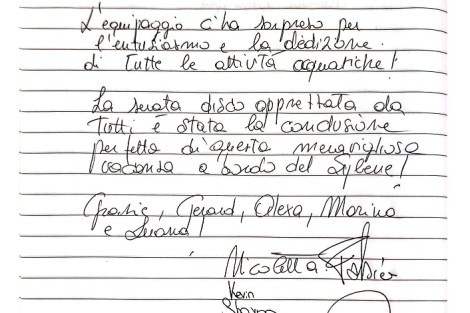 L'equipaggio ci ha sorpreso per
l'entusiasmo e la dedizione
di Tutte le attività acquatiche!
La serata disco apprezzata da
Tutti è stata la conclusione
perfetta di questa meravigliosa
vacanza a bordo del
Grazie, Gerard, Alexa, Marina
e
Nicoletta Fabier
Kevin